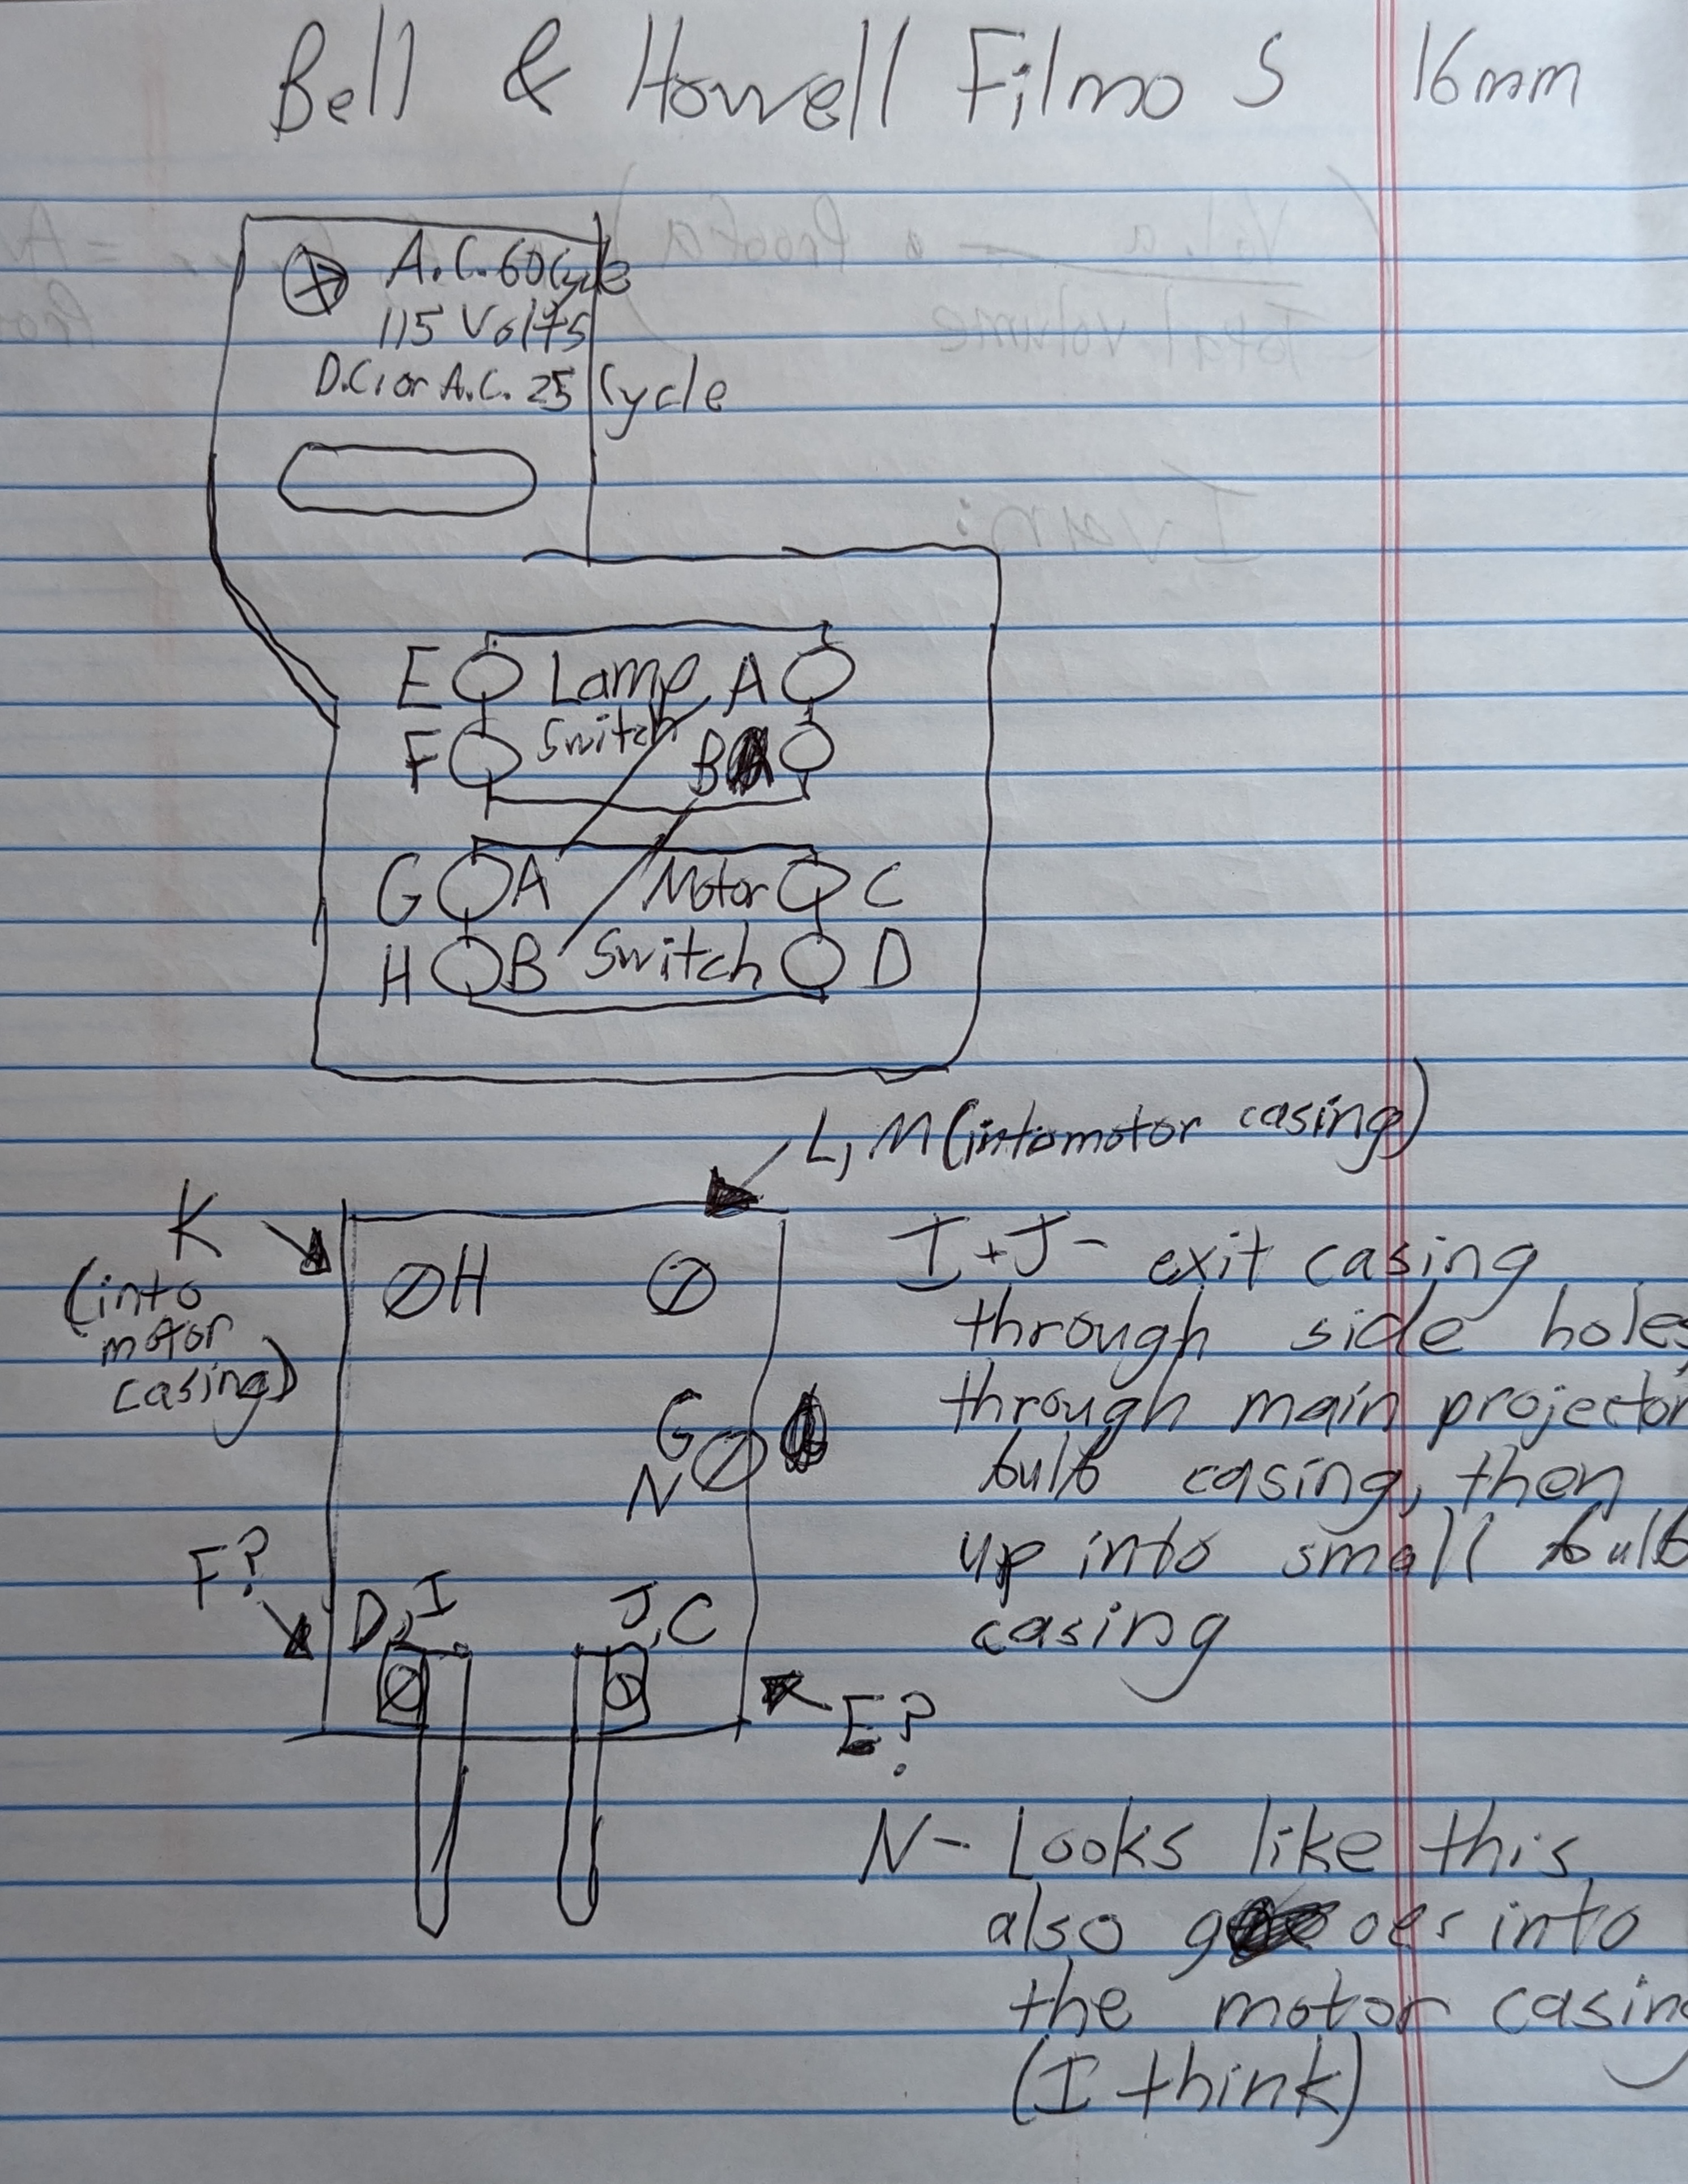 Bell & Howell Filmo S 16mm
A.C. 60 Cycle
115 Volts
D.C. or A.C. 25 Cycle
E Lamp A
F Switch B
G A Motor C
H B Switch D
L, M (into motor casing)
K
(into
motor
casing)
H
G
N
F?
D, I
J, C
E?
I + J - exit casing
through side holes
through main projector
bulb casing, then
up into small bulb
casing
N- Looks like this
also goes into
the motor casing
(I think)
Vol. a
Proof a
Total volume
Ivan: